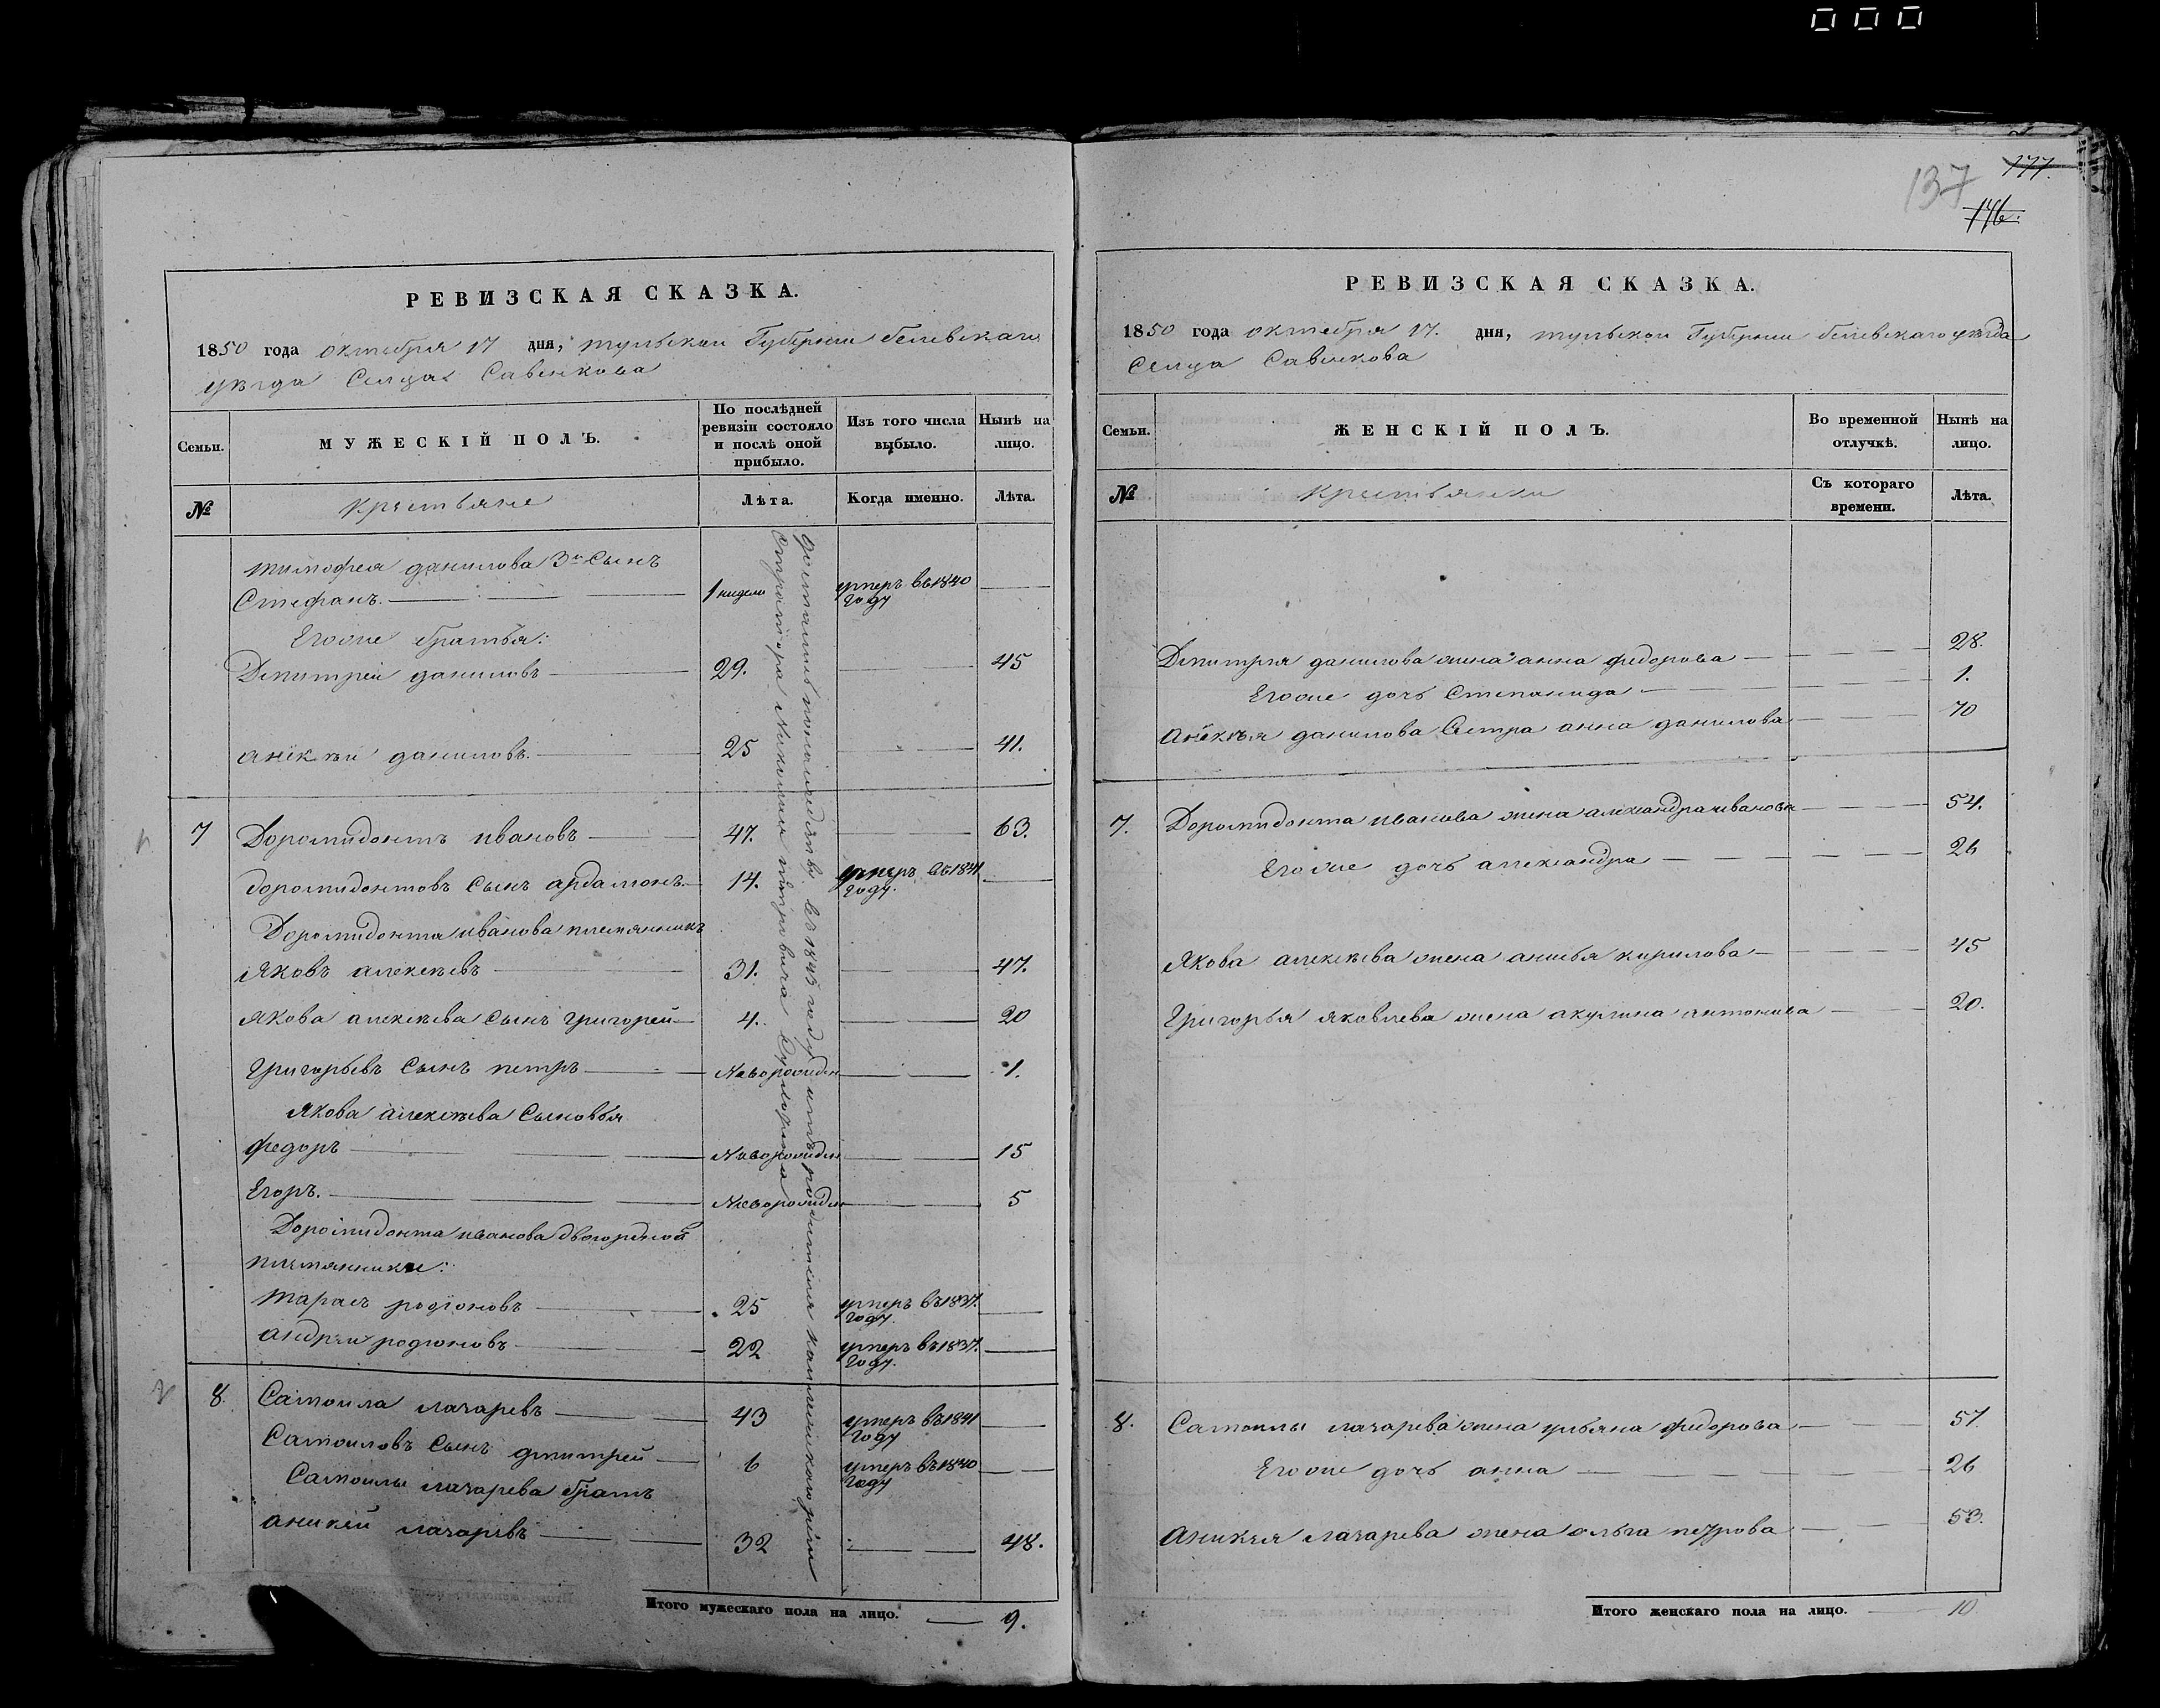 000
137
177.
146.
РЕВИЗСКАЯ СКАЗКА.
1850 года октября 17 дня, тульской Губернии белевскаго
уѣзда Сельца Савенкова
Семьи.
МУЖЕСКІЙ ПОЛЪ.
По послѣдней ревизіи состояло и послѣ оной прибыло.
Изъ того числа выбыло.
Нынѣ на лицо.
№
крестьяне
Лѣта.
Когда именно.
Лѣта.
тимофея данилова 3й Сынъ
Стефанъ. 1 недели умеръ въ 1840 году
Егоже братья:
Дмитрей даниловъ 29. 45
анікѣй даниловъ. 25 41.
7 Доромидонтъ ивановъ 47. 63.
доромидонтовъ Сынъ ардамонъ. 14. умеръ въ 1841 году.
Доромидонта иванова племянникъ
Яковъ алексѣевъ 31. 47.
якова алексѣева Сынъ григорей 4. 20
Григорьевъ Сынъ петръ Новорожден 1.
якова алексѣева Сыновья
федоръ Новорожден 15
Егоръ. Новорожден 5
Доромидонта иванова двоюродной
племянники:
тарасъ родіоновъ 25 умеръ въ 1837. году.
андрей родионовъ 22 умеръ въ 1837. году.
8. Самоила лазаревъ 43 умеръ въ 1841 году
Самоиловъ Сынъ дмитрей 6 умеръ въ 1840 году
Самоилы лазарева братъ
аникей лазаревъ 32 48.
Итого мужескаго пола на лицо. 9.
достались по наследству въ 1845 году отъ родителя
РЕВИЗСКАЯ СКАЗКА.
1850 года октября 17. дня, тульской Губернии белевскаго уѣзда
Сельца Савенкова
Семьи.
ЖЕНСКІЙ ПОЛЪ.
Во временной отлучкѣ.
Нынѣ на лицо.
№
крестьянки
Съ котораго времени.
Лѣта.
Дмитрия данилова жена анна федорова 28.
Егоже дочь Степанида 1.
анікѣя данилова Сестра анна данилова 40
7. Доромидонта иванова жена александра иванова 54.
Егоже дочь александра 26
Якова алексѣева жена анисья кирилова 45
Григорья яковлева жена акулина антонова 20.
8. Самоилы лазарева жена ульяна федорова 57
Егоже дочь анна 26
Аникея лазарева жена ольга петрова 53.
Итого женскаго пола на лицо. 10.